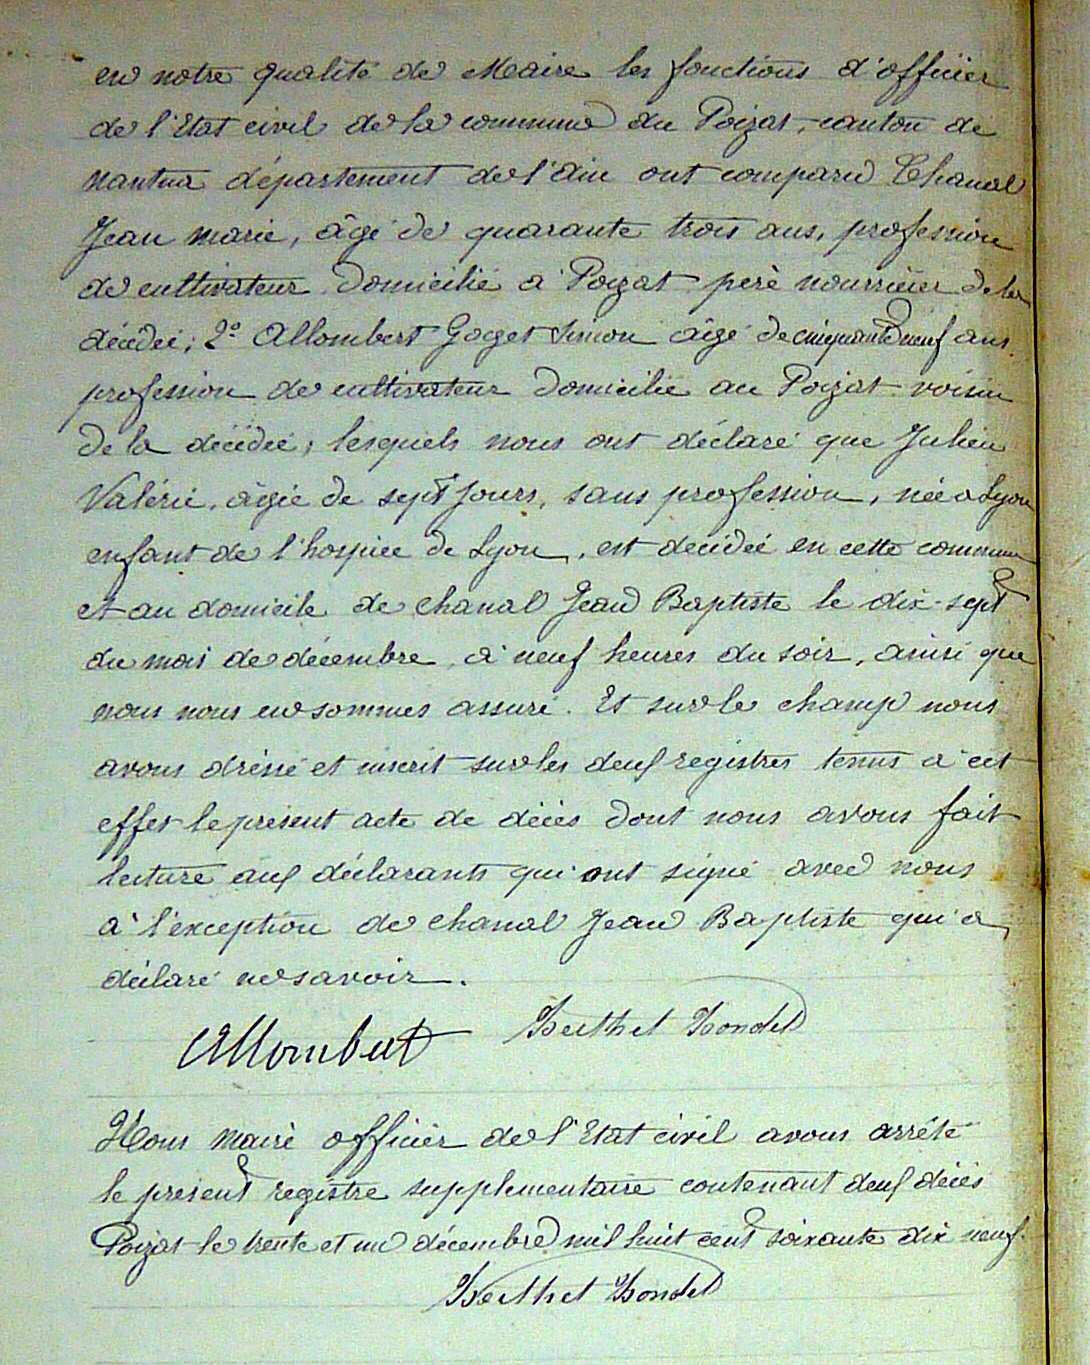 en notre qualité de Maire les fonctions d'officier
de l'Etat civil de la commune du Poizat, canton de
Nantua département de l'Ain ont comparu Chanal
Jean Marie, âgé de quarante trois ans, profession
de cultivateur domicilié à Poizat père nourricier de la
décédée; 2º Allombert Goget Simon âgé de cinquante neuf ans
profession de cultivateur domicilié au Poizat voisin
de la décédée; lesquels nous ont déclaré que Julien
Valérie, âgée de sept jours, sans profession, née à Lyon
enfant de l'hospice de Lyon, est décédée en cette commune
et au domicile de Chanal Jean Baptiste le dix-sept
du mois de décembre à neuf heures du soir, ainsi que
nous nous en sommes assuré. Et sur le champ nous
avons dressé et inscrit sur les deux registres tenus à cet
effet le présent acte de décès dont nous avons fait
lecture aux déclarants qui ont signé avec nous
à l'exception de Chanal Jean Baptiste qui a
déclaré ne savoir.
Allombert Berthet Bondet
Nous Maire officier de l'Etat civil avons arrêté
le présent registre supplémentaire contenant deux décès
Poizat le trente et un décembre mil huit cent soixante dix neuf.
Berthet Bondet